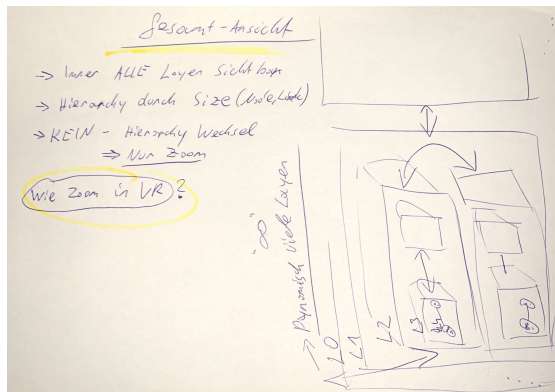 Gesamt-Ansicht
→ Immer ALLE Layer Sichtbar
→ Hierarchy durch Size (Node, Link)
→ KEIN - Hierarchy Wechsel
⇒ Nur Zoom
Wie Zoom in VR?
"∞"
→ Dynamisch viele Layer
L0
L1
L2
L3